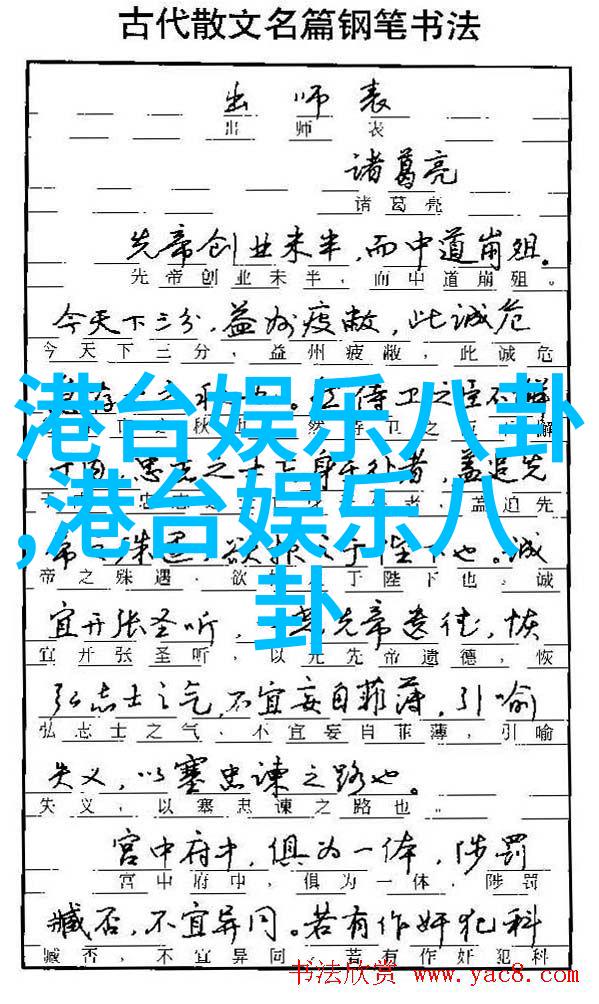 古代散文名篇钢笔书法
出师表
出师表
诸葛亮
诸葛亮
先帝创业未半,而中道崩殂。
先帝创业未半,而中道崩殂。
今天下三分,益州疲敝,此诚危
今天下三分,益州疲敝,此诚危
港台娱乐八卦
侍卫之臣不
秋
卫之
懈
忠志之士 身于外者,盖追先
者,盖追先
,港台娱乐八
卦
殊遇,欲报之于陛下也。诚
帝之殊遇,欲 于陛下也,诚
宜开张圣听, 先帝遗德,恢
宜开张圣听,以光先帝遗德,恢
弘志士之气,不宜妄自菲薄,引喻
弘志士之气,不宜妄自菲薄,引喻
失义,以塞忠谏之路也。
失义,以塞忠谏之路也。
宫中府中,俱为一体,陟罚
宫中府中,俱为一体,陟罚
臧否,不宜异同。若有作奸犯科
臧否,不宜异同。若有作奸犯科
书法欣赏 www.yac8.com